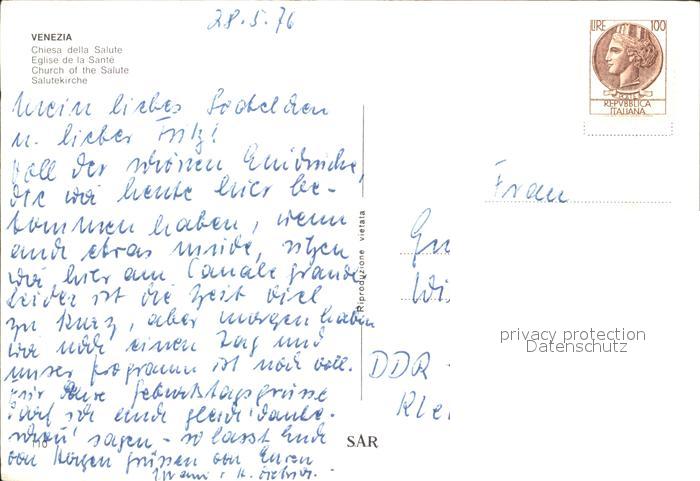 28.5.76
VENEZIA
Chiesa della Salute
Eglise de la Santé
Church of the Salute
Salutekirche
LIRE 100
ITALIA
REPVBBLICA
ITALIANA
Mein liebes
u. lieber Fritz!
Voll der schönen Eindrücke,
die wir heute hier be-
kommen haben, wenn
auch etwas müde, sitzen
wir hier am Canale grande
leider ist die Zeit viel
zu kurz, aber morgen haben
wir noch einen Tag und
unser Programm ist noch voll.
Für Deine Geburtstagsgrüsse
darf ich auch gleich danke-
schön sagen - so lasst Euch
von Herzen grüssen von Euren
Riproduzione vietata
Frau
Wi
DDR -
Kle
privacy protection
Datenschutz
SAR